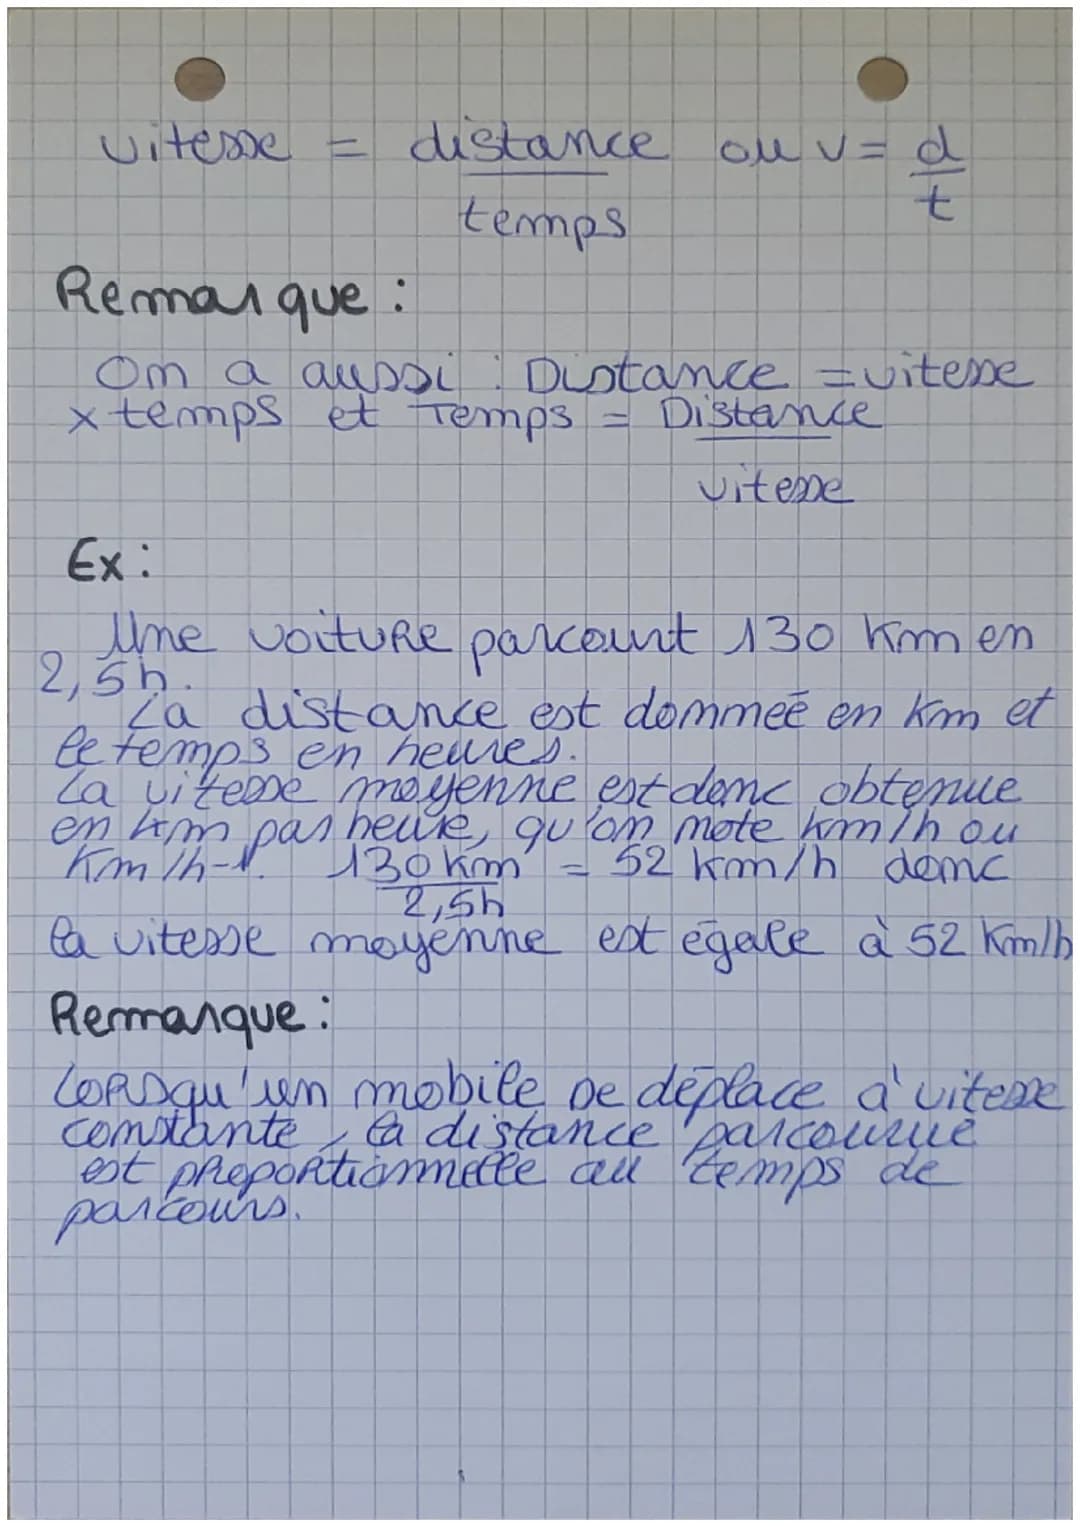 vitesse = distance ou v = d
temps t
Remarque :
On a aussi : Distance = vitesse
x temps et Temps = Distance
vitesse
Ex :
Une voiture parcourt 130 Km en
2,5h.
La distance est donneé en Km et
le temps en heures.
La vitesse moyenne est donc obtenue
en km par heure, qu'on note km/h ou
Km/h-1. 130 km = 52 km/h donc
2,5h
la vitesse moyenne est égale à 52 Km/h
Remarque :
Lorsqu'un mobile se déplace à vitesse
constante, la distance parcourue
est proportionnelle au temps de
parcours.